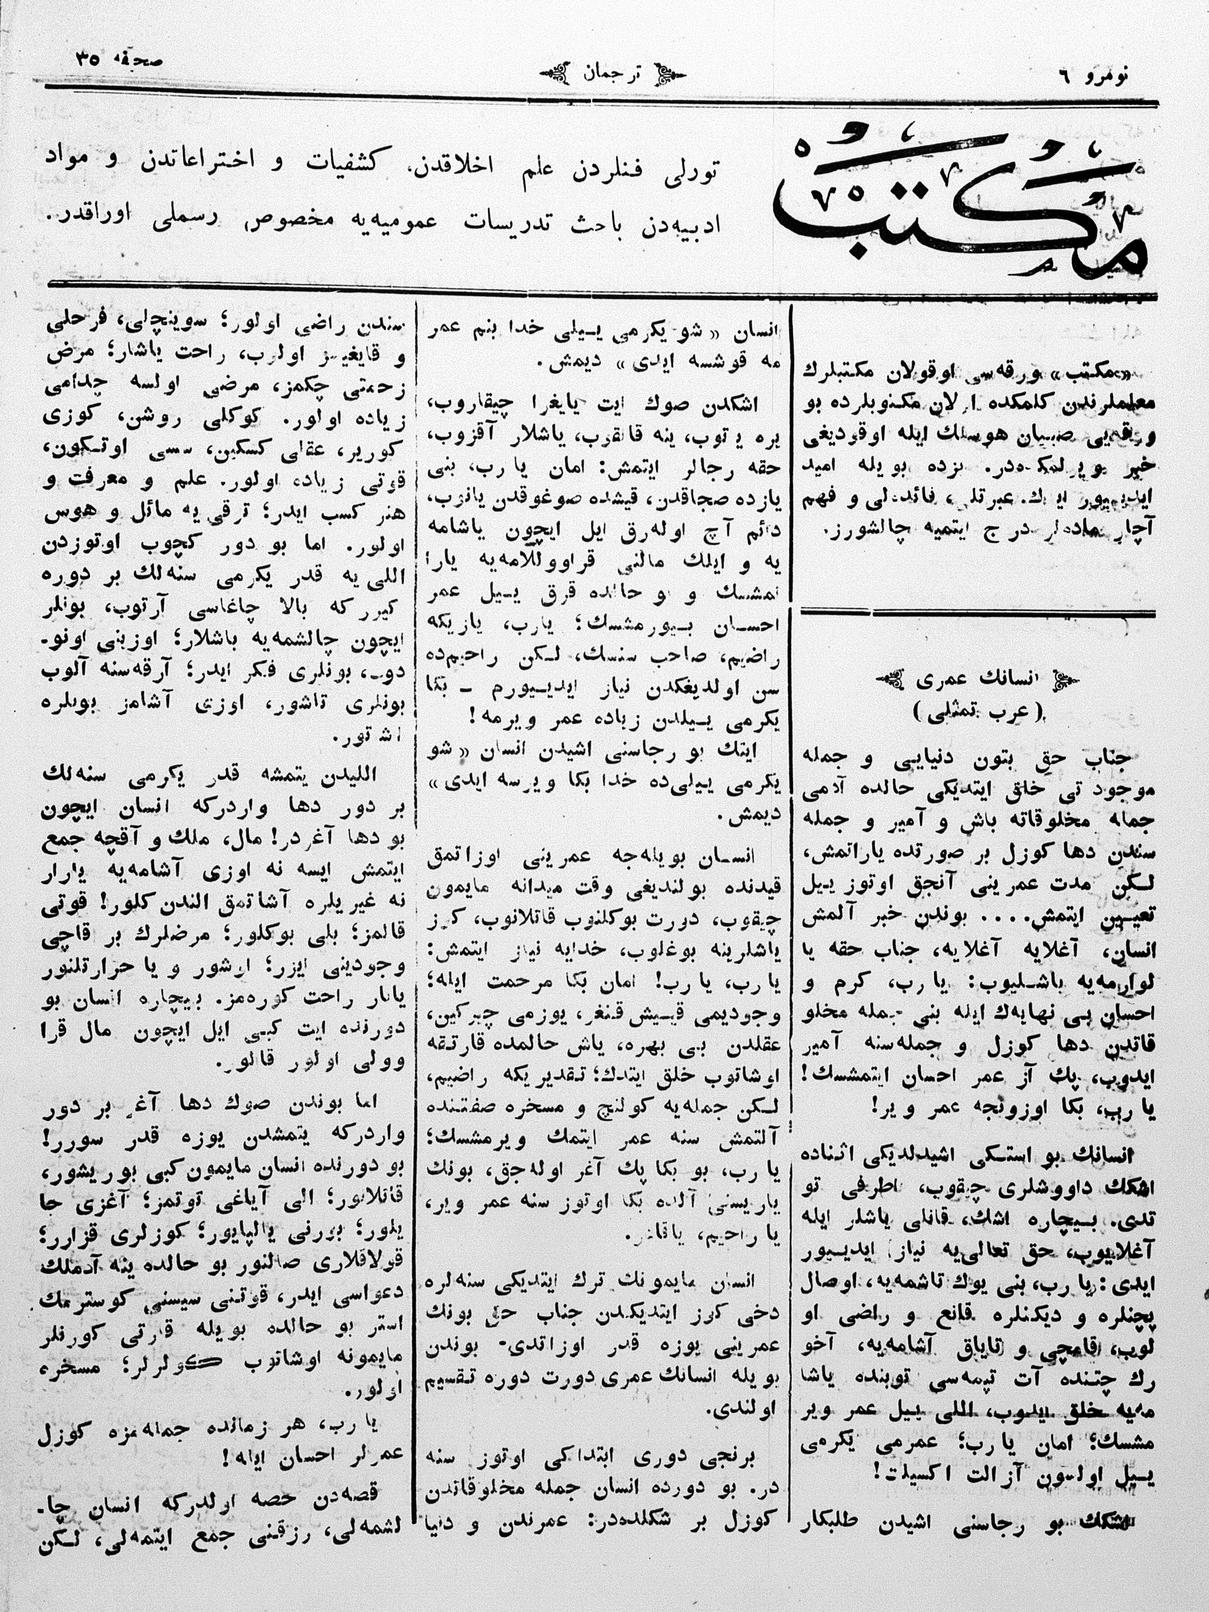 نومرو ٦
ترجمان
صحیفه ٣٥
مكتب
تورلی فنلردن علم اخلاقدن، كشفیات و اختراعاتدن و مواد
ادبیه‌دن باحث تدریسات عمومیه‌یه مخصوص رسملی اوراقدر.
«مكتب» ورقه‌سی اوقولان مكتبلرك
معلملرندن كلمكده اولان مكتوبلرده بو
ورقه‌یی صبیان هوسلك ایله اوقودیغی
خبر ویرلمكه‌در. بزده بویله امید
ایدییور ایدك. عبرتلی، فائده‌لی و فهم
آچار ماده‌لر درج ایتمیه چالشورز.
انسانك عمری
(عرب تمثلی)
جناب حق بتون دنیایی و جمله
موجوداتی خلق ایتدیكی حالده آدمی
جمله مخلوقاته باش و آمیر و جمله
سندن دها كوزل بر صورتده یاراتمش،
لكن مدت عمرینی آنجق اوتوز ییل
تعیین ایتمش.... بوندن خبر آلمش
انسان، آغلایه آغلایه، جناب حقه یا
لوارمه‌یه باشلیوب: یا رب، كرم و
احسان بی نهایه‌ك ایله بنی جمله مخلو
قاتدن دها كوزل و جمله‌سنه آمیر
ایدوب، پك آز عمر احسان ایتمشسك!
یا رب، بكا اوزونجه عمر ویر!
انسانك بو استكی اشیدلدیكی اثناده
اشك داووشلری چیقوب، اطرفی تو
تدی. بیچاره اشك، قانلی یاشلر ایله
آغلایوب، حق تعالی‌یه نیاز ایدییور
ایدی: یا رب، بنی یوك تاشمه‌یه، اوصال
پچنلره و دیكنلره قانع و راضی او
لوب، قامچی و تایاق آشامه‌یه، آخو
رك چتنده آت تپمه‌سی توبنده یاشا
مه‌یه خلق ایدوب، اللی ییل عمر ویر
مشسك؛ امان یا رب؛ عمرمی یكرمی
ییل اولسون آزالت اكسیلت!
اشكك بو رجاسنی اشیدن طلبكار
انسان «شو یكرمی ییلی خدا بنم عمر
مه قوشسه ایدی» دیمش.
اشكدن صوك ایت یایغرا چیقاروب،
یره یاتوب، ینه قالقوب، یاشلار آقزوب،
حقه رجالر ایتمش: امان یا رب، بنی
یازده صجاقدن، قیشده صوغوقدن یانوب،
دائم آچ اوله‌رق ایل ایچون یاشامه
یه و ایلك مالنی قراووللامه‌یه یارا
تمشسك و بو حالده قرق ییل عمر
احسان بیورمشسك؛ یارب، یازیكه
راضیم، صاحب سنسك، لكن راحیم‌ده
سن اولدیغكدن نیاز ایدییورم ـ بكا
یكرمی ییلدن زیاده عمر ویرمه!
ایتك بو رجاسنی اشیدن انسان «شو
یكرمی ییلی‌ده خدا بكا ویرسه ایدی»
دیمش.
انسان بویله‌جه عمرینی اوزاتمق
قیدنده بولندیغی وقت میدانه مایمون
چیقوب، دورت بوكلنوب قاتلانوب، كوز
یاشلرینه بوغلوب، خدایه نیاز ایتمش:
یا رب، یا رب! امان بكا مرحمت ایله؛
وجودیمی قبیش قنغر، یوزمی چیركین،
عقلدن بی بهره، یاش حالمده قارتقه
اوشاتوب خلق ایتدك؛ تقدیریكه راضیم،
لكن جمله‌یه كولنچ و مسخره صفتنده
آلتمش سنه عمر ایتمك ویرمشسك؛
یا رب، بو بكا پك آغر اوله‌جق، بونك
یاریسنی آلده بكا اوتوز سنه عمر ویر،
یا راحیم،
انسان مایمونك ترك ایتدیكی سنه‌لره
دخی كوز ایتدیكدن جناب حق بونك
عمرینی یوزه قدر اوزاتدی. بوندن
بویله انسانك عمری دورت دوره تقسیم
اولندی.
برنجی دوری ابتداكی اوتوز سنه
در. بو دورده انسان جمله مخلوقاتدن
كوزل بر شكلده‌در: عمرندن و دنیا
سندن راضی اولور؛ سوینچلی، فرحلی
و قایغیسز اولوب، راحت یاشار؛ مرض
زحمتی چكمز، مرضی اولسه چدامی
زیاده اولور. كوكلی روشن، كوزی
كوریر، عقلی كسكین، سسی اوتكون،
قوتی زیاده اولور. علم و معرفت و
هنر كسب ایدر؛ ترقی یه مائل و هوس
اولور. اما بو دور كچوب اوتوزدن
اللی یه قدر یكرمی سنه‌لك بر دوره
كیرركه بالا چاغاسی آرتوب، بونلر
ایچون چالشمه‌یه باشلار؛ اوزینی اونو‌ـ
دوب، بونلری فكر ایدر؛ آرقه‌سنه آلوب
بونلری تاشور، اوزی آشامز بونلره
آشاتور.
اللیدن یتمشه قدر یكرمی سنه‌لك
بر دور دها واردركه انسان ایچون
بو دها آغردر! مال، ملك و آقچه جمع
ایتمش ایسه نه اوزی آشامه‌یه یارار
نه غیریلره آشاتمق الندن كلور! قوتی
قالمز؛ بلی بوكلور؛ مرضلرك بر قاچی
وجودینی ایزر؛ اوشور و یا حرارتلنور
یانار راحت كوره‌مز. بیچاره انسان بو
دورنده ایت كبی ایل ایچون مال قرا
وولی اولور قالور.
اما بوندن صوك دها آغر بر دور
واردركه یتمشدن یوزه قدر سورر!
بو دورنده انسان مایمون كبی بوریشور،
قاتلانور؛ الی آیاغی توتمز؛ آغزی جا
یلور؛ بورنی یالپایور؛ كوزلری قزارر؛
قولاقلاری صالنور بو حالده ینه آدملك
دعواسی ایدر، قوتنی سیسنی كوسترمك
استر بو حالده بویله قارتی كورنلر
مایمونه اوشاتوب كولرلر؛ مسخره
اولور.
یا رب، هر زمانده جمله‌مزه كوزل
عمرلر احسان ایله!
قصه‌دن حصه اولدركه انسان چا‌ـ
لشمه‌لی، رزقنی جمع ایتمه‌لی، لكن